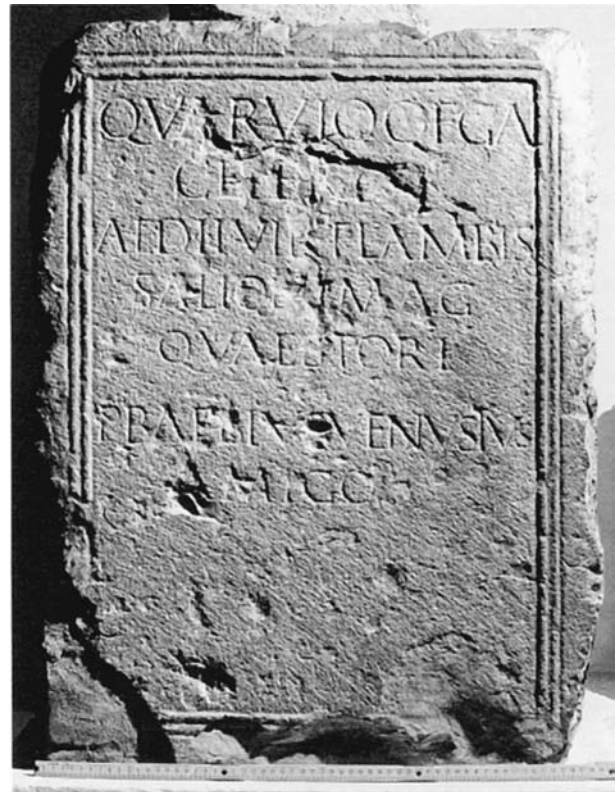 QVARVIOQFGAL
CELERI
AEDIIVIRFLAMBIS
SALIOETMAG
QVAESTORI
PBAEBIVSVENVSIVS
AMICO